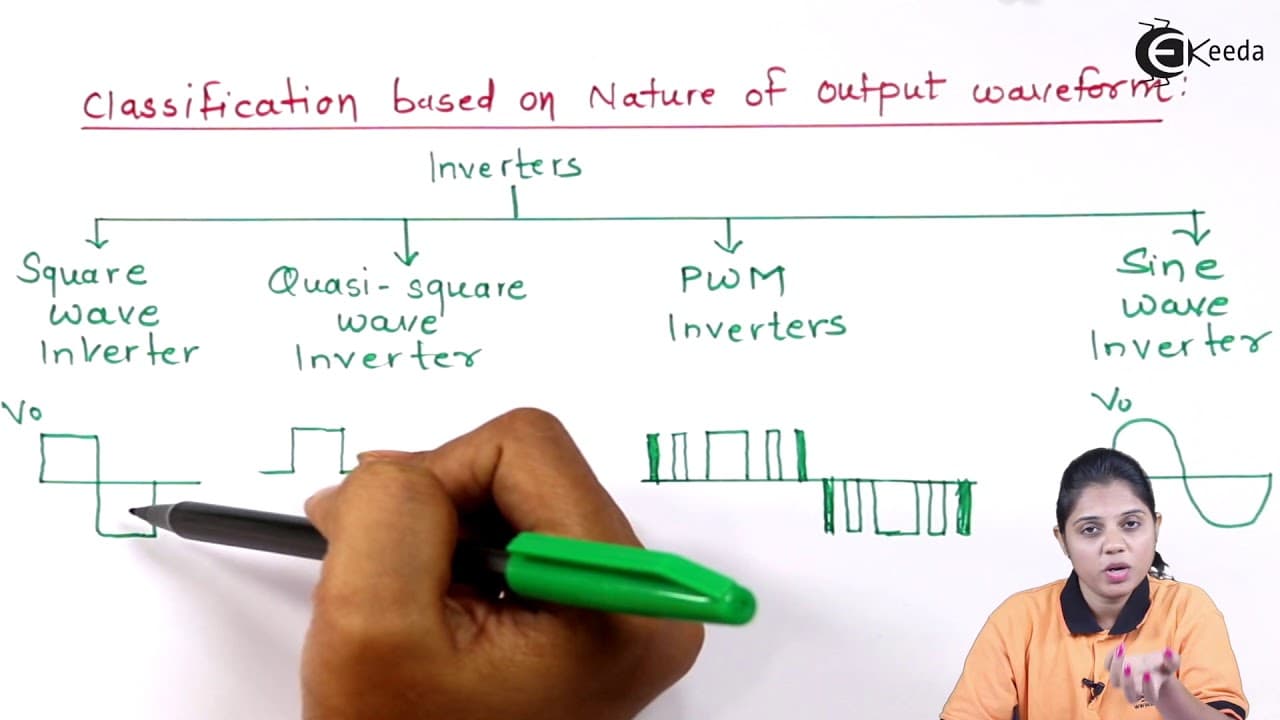 EKeeda
Classification based on Nature of output waveform:
Inverters
Square
wave
Inverter
Quasi-square
wave
Inverter
PWM
Inverters
Sine
wave
Inverter
Vo
Vo